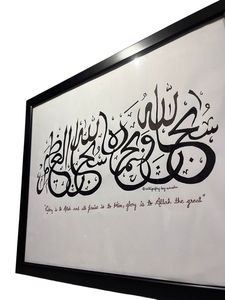 سبحان الله وبحمده سبحان الله العظيم
©calligraphy by
"Glory is to Allah and all praise is to Him, glory is to Allah the great"